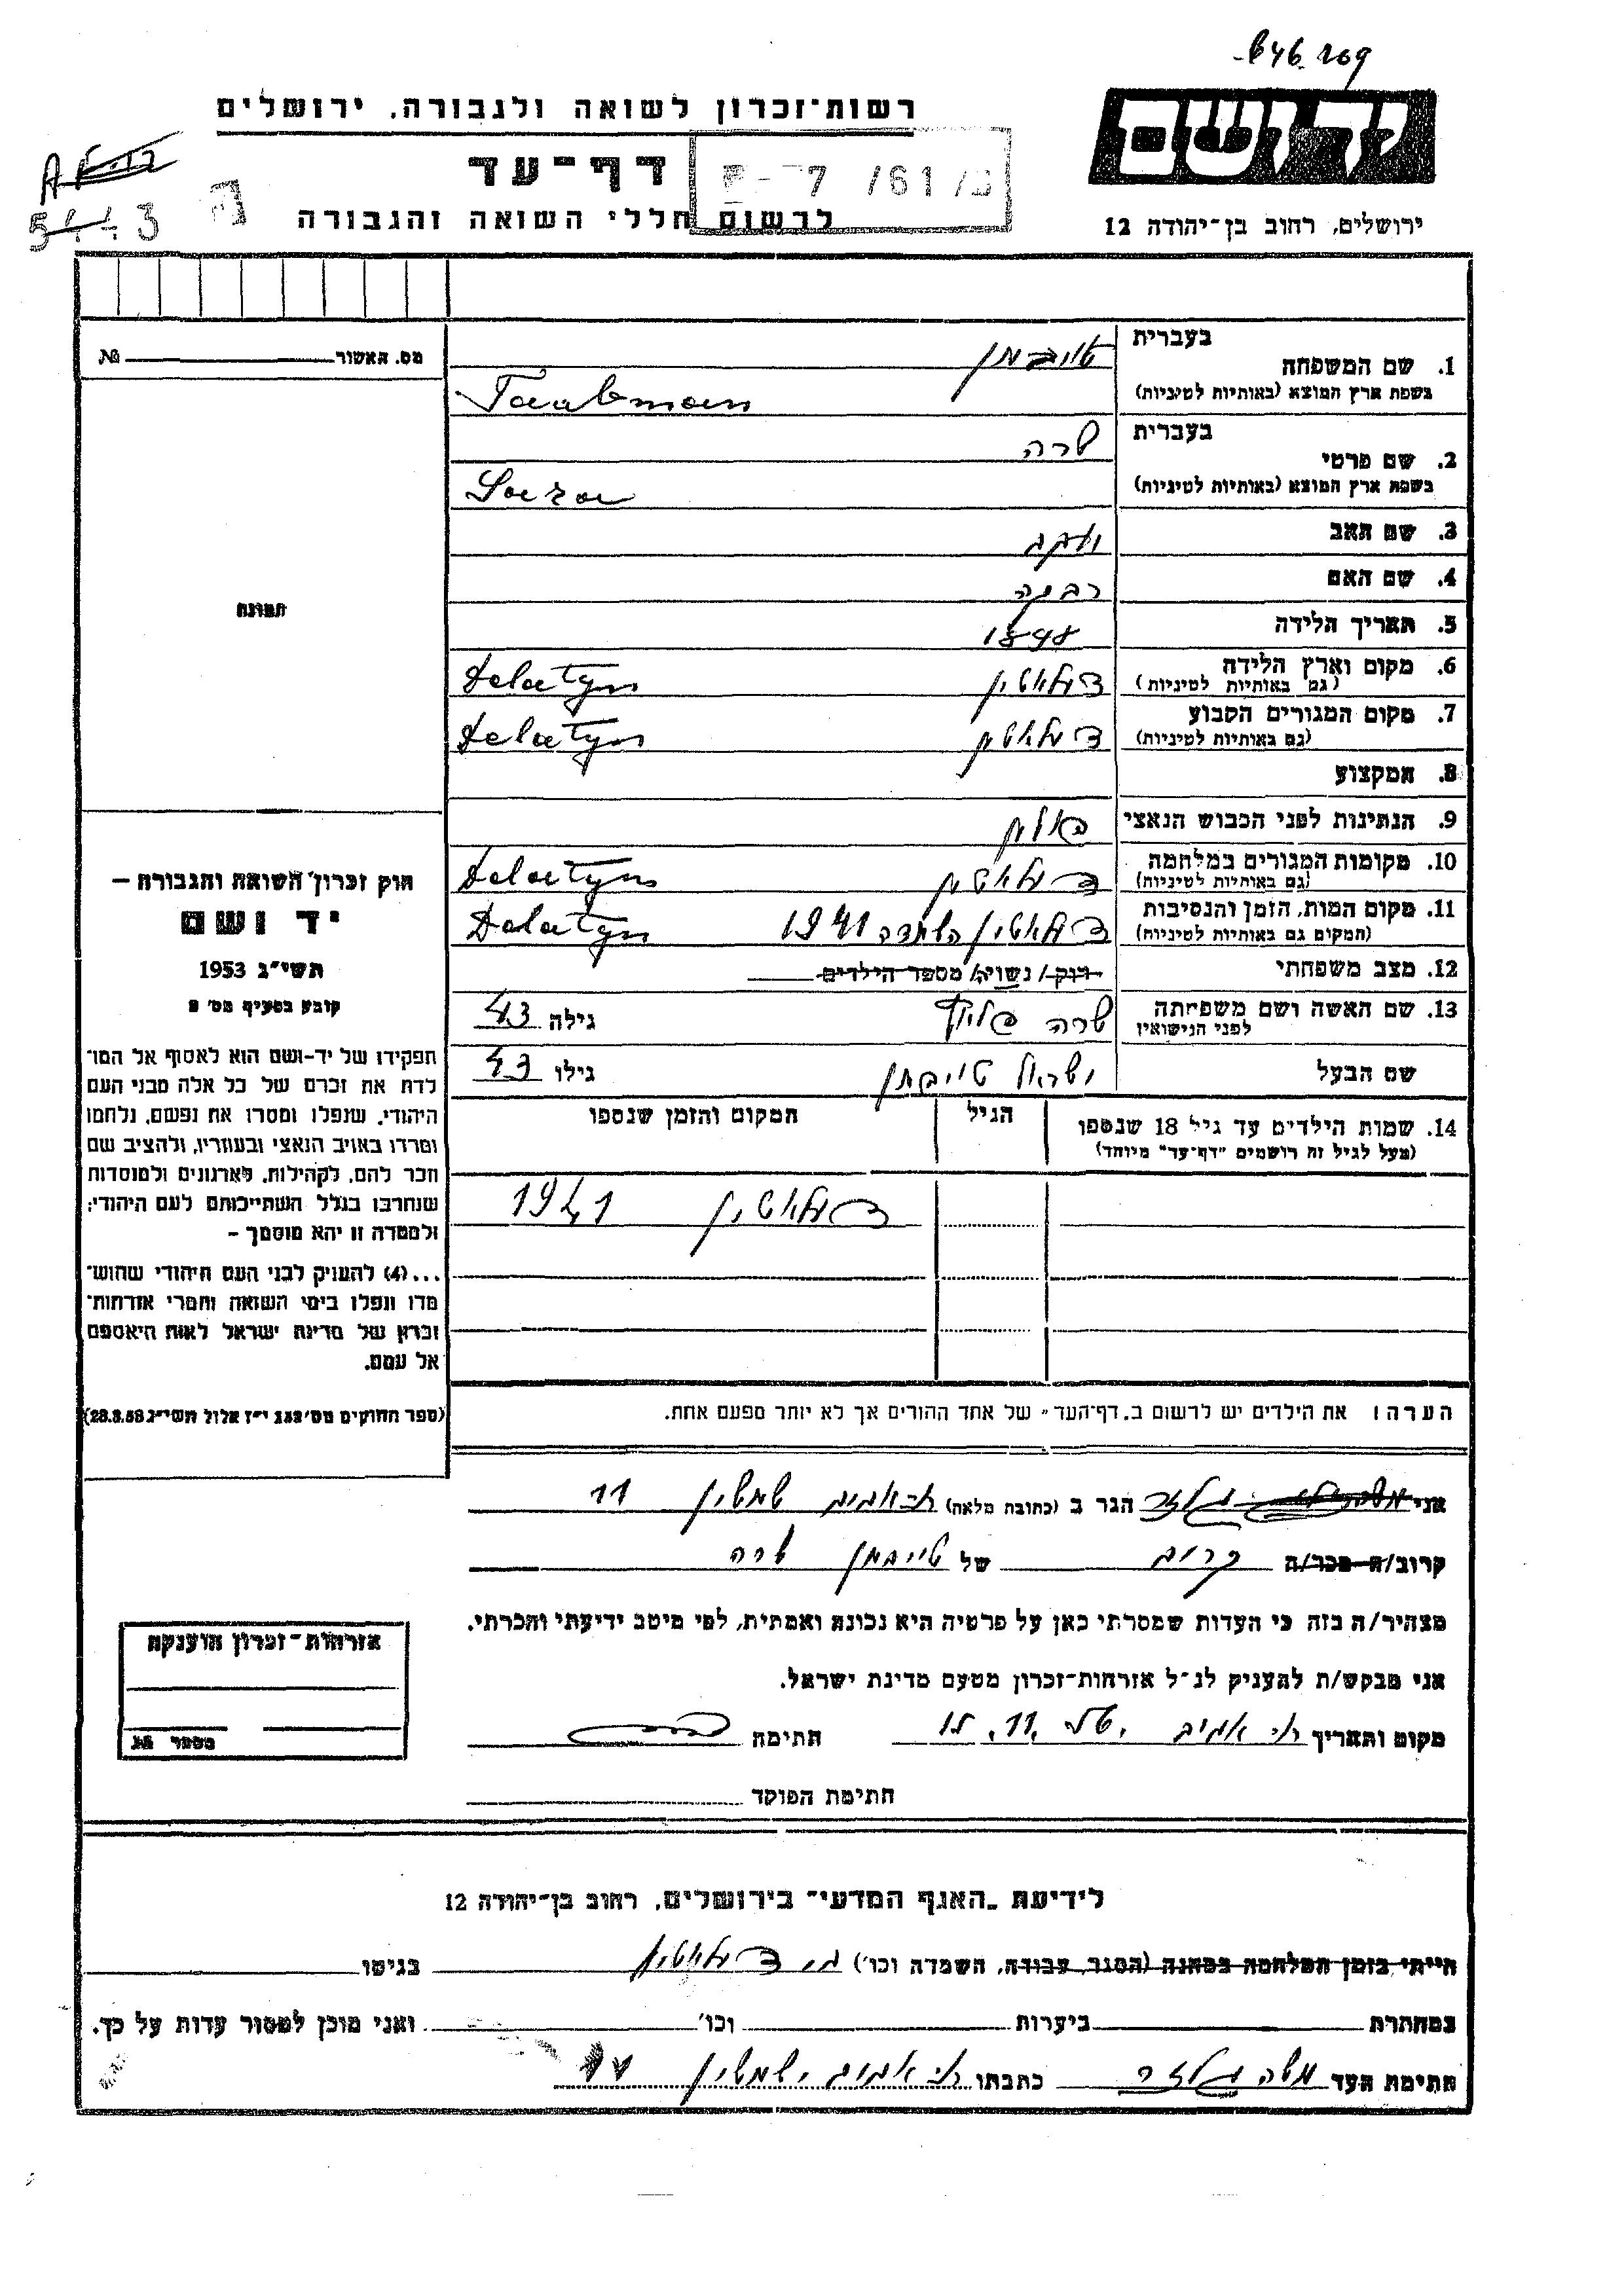 רשות־זכרון לשואה ולגבורה, ירושלים
דף־עד
לרשום חללי השואה והגבורה
יד ושם
ירושלים, רחוב בן־יהודה 12
7 /61
מס. האשור №
תמונה
בעברית
1. שם המשפחה טויבמן
בשפת ארץ המוצא (באותיות לטיניות) Taubman
בעברית
2. שם פרטי שרה
בשפת ארץ המוצא (באותיות לטיניות) Sara
3. שם האב יעקב
4. שם האם
5. תאריך הלידה 1898
6. מקום וארץ הלידה דלאטין Delatyn
(גם באותיות לטיניות)
7. מקום המגורים הקבוע דלאטין Delatyn
(גם באותיות לטיניות)
8. המקצוע
9. הנתינות לפני הכבוש הנאצי פולין
10. מקומות המגורים במלחמה דלאטין Delatyn
(גם באותיות לטיניות)
11. מקום המות, הזמן והנסיבות דלאטין השמדה 1941 Delatyn
(המקום גם באותיות לטיניות)
12. מצב משפחתי רוק/ נשוי/ה/ מספר הילדים
13. שם האשה ושם משפחתה שרה גילה 43
לפני הנישואין
שם הבעל ישראל טויבמן גילו 43
14. שמות הילדים עד גיל 18 שנספו הגיל המקום והזמן שנספו
(מעל לגיל זה רושמים "דף־עד" מיוחד)
דלאטין 1941
הערה: את הילדים יש לרשום ב„דף־העד" של אחד ההורים אך לא יותר מפעם אחת.
חוק זכרון השואה והגבורה –
יד ושם
תשי"ג 1953
קובע בסעיף מס' 2
תפקידו של יד-ושם הוא לאסוף אל המו־
לדת את זכרם של כל אלה מבני העם
היהודי, שנפלו ומסרו את נפשם, נלחמו
ומרדו באויב הנאצי ובעוזריו, ולהציב שם
וזכר להם, לקהילות, לארגונים ולמוסדות
שנחרבו בגלל השתייכותם לעם היהודי;
ולמטרה זו יהא מוסמך –
...(4) להעניק לבני העם היהודי שהוש־
מדו ונפלו בימי השואה והמרי אזרחות־
זכרון של מדינת ישראל לאות היאספם
אל עמם.
(ספר החוקים מס' 132 י"ז אלול תשי"ג 28.8.53)
אני הגר ב (כתובת מלאה) תל אביב 11
קרוב/ה מכר/ה קרוב של טויבמן שרה
מצהיר/ה בזה כי העדות שמסרתי כאן על פרטיה היא נכונה ואמתית, לפי מיטב ידיעתי והכרתי.
אני מבקש/ת להעניק לנ"ל אזרחות־זכרון מטעם מדינת ישראל.
מקום ותאריך תל אביב חתימה
חתימת הפוקד
אזרחות־זכרון הוענקה
מספר №
לידיעת „האגף המדעי" בירושלים, רחוב בן־יהודה 12
הייתי בזמן המלחמה במחנה (הסגר, עבודה, השמדה וכו') דלאטין בגיטו
במחתרת ביערות וכו' ואני מוכן למסור עדות על כך.
חתימת העד משה כתבתו תל אביב